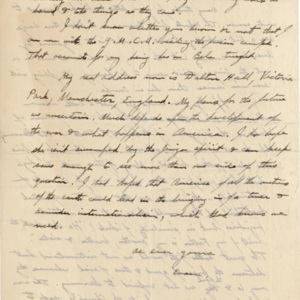 hand & the things as they are.
I don't know whether you know or not that I
am with the Y.M.C.A. visiting the prison camps.
That accounts for my being here in
My next address now is Dalton Hall, Victoria
Park, Manchester, England. My plans for the future
are uncertain. Much depends upon the development of
the war & what happens in America. I do hope
she isn't swamped by the jingo spirit & can keep
sane enough to see more than one side of this
question. I had hoped that America of all the nations
of the earth could lead in the bringing in of a truer &
internationalism, which God knows we
need.
As ever yours